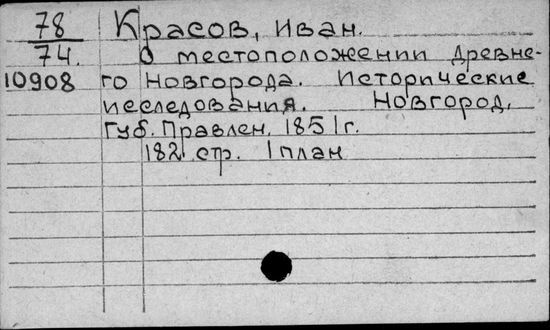 78 Красов, Иван.
74. О местоположении древне-
10908 го Новгорода. Исторические
исследования. Новгород,
Губ. Правлен, 1851 г.
182 стр. 1 план